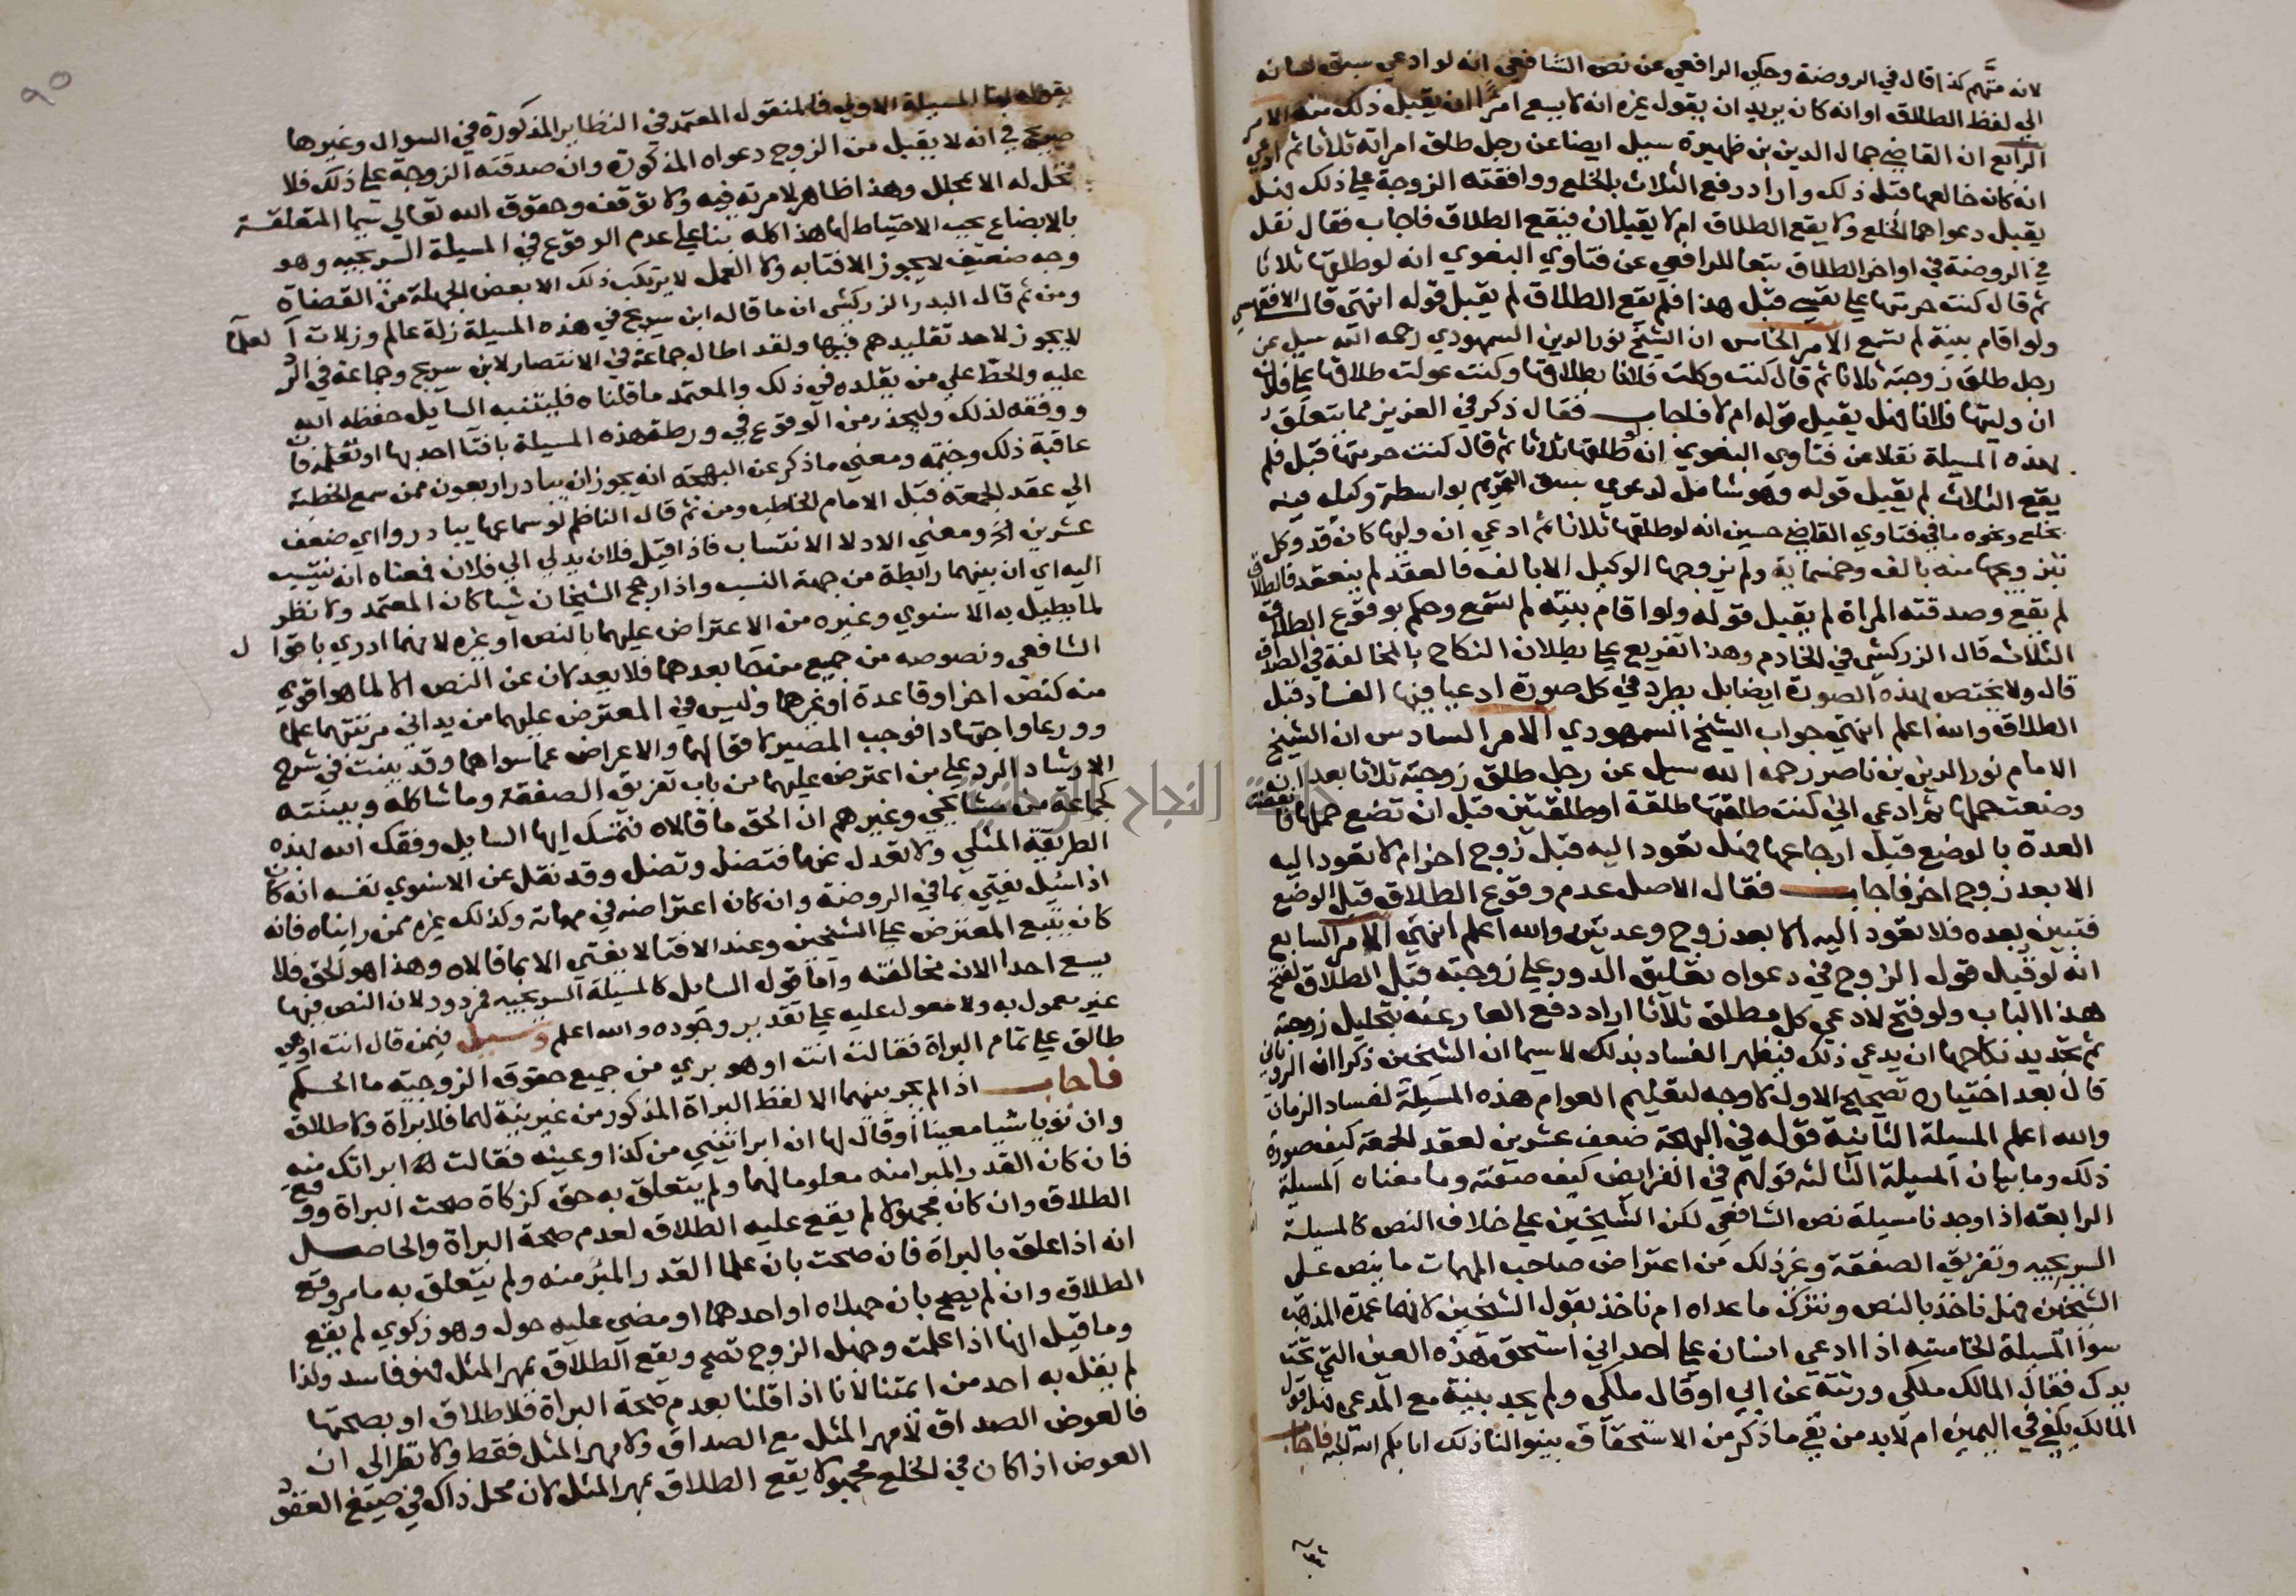 لانه متهم كذا قال في الروضة وحكى الرافعي عن نص الشافعي انه لو ادعي سبق لسانه
الي لفظ الطلاق او انه كان يريد ان يقول غيره انه لا يسع امراته ان يقبل ذلك منه الامر
الرابع ان القاضي جمال الدين بن ظهيرة سيل ايضا عن رجل طلق امراته ثلاثا ثم ادعي
انه كان خالعها قبل ذلك واراد رفع الثلاث بالخلع ووافقته الزوجة علي ذلك فهل
يقبل دعواهما الخلع ولا يقع الطلاق ام لا يقبلان فيقع الطلاق فاجاب فقال نقل
في الروضة في اواخر الطلاق تبعا للرافعي عن فتاوي البغوي انه لو طلقها ثلاثا
ثم قال كنت حرمتها علي نفسي قبل هذا فلم يقع الطلاق لم يقبل قوله انتهي قال الاقفهسي
ولو اقام بينة لم تسمع الامر الخامس ان الشيخ نور الدين السمهودي رحمه الله سيل عن
رجل طلق زوجته ثلاثا ثم قال كنت وكلت فلانا بطلاقها وكنت عولت طلاقها علي فلان
ان وليتها فلانا فهل يقبل قوله ام لا فاجاب فقال ذكر في العزيز مما يتعلق
بهذه المسيلة نقلا عن فتاوي البغوي انه لو طلقها ثلاثا ثم قال كنت حرمتها قبل فلم
يقع الثلاث لم يقبل قوله وهو شامل لدعوي سبق التحريم بواسطة وكيله فيه
بخلع ونحوه ما في فتاوي القاضي حسين انه لو طلقها ثلاثا ثم ادعي ان وليها كان قد وكل
بتزويجها منه بالف وخمسماية ولم يزوجها الوكيل الا بالف فالعقد لم ينعقد فالطلاق
لم يقع وصدقته المراة لم يقبل قوله ولو اقام بينة لم تسمع وحكم بوقوع الطلاق
الثلاث قال الزركشي في الخادم وهذا تفريع علي بطلان النكاح بالمخالفة في الصداق
قال ولا يختص بهذه الصورة ايضا بل يطرد في كل صورة ادعيا فيها الفساد قبل
الطلاق والله اعلم انتهي جواب الشيخ السمهودي الامر السادس ان الشيخ
الامام نور الدين بن ناصر رحمه الله سيل عن رجل طلق زوجته ثلاثا بعد ان
وضعت حملها ثم ادعي اني كنت طلقتها طلقة او طلقتين قبل ان تضع حملها فانقضت
العدة بالوضع قبل ارجاعها فهل تعود اليه قبل زوج اخر ام لا تعود اليه
الا بعد زوج اخر فاجاب فقال الاصل عدم وقوع الطلاق قبل الوضع
فتبين بعده فلا تعود اليه الا بعد زوج وعدتين والله اعلم انتهي الامر السابع
انه لو قبل قول الزوج في دعواه تعليق الدور علي زوجته قبل الطلاق لفتح
هذا الباب ولو فتح لادعي كل مطلق ثلاثا اراد دفع العار عنه بتحليل زوجته
ثم تجديد نكاحها ان يدعي ذلك فيظهر الفساد بذلك لا سيما ان الشيخين ذكرا ان الروياني
قال بعد اختياره تصحيح الاول لا وجه لتعليم العوام هذه المسيلة لفساد الزمان
والله اعلم المسيلة الثانية قوله في البهجة ضعف عشرين لعقد الجمعة كيف صورة
ذلك وما بيان المسيلة الثالثة قولهم في الفرايض كيف صفته وما معناه المسيلة
الرابعة اذا وجدنا مسيلة نص الشافعي لكن الشيخين علي خلاف النص كالمسيلة
السريجيه وتفريق الصفقة وغير ذلك من اعتراض صاحب المهمات ما ينص علي
الشيخين فهل ناخذ بالنص ونترك ما عداه ام ناخذ بقول الشيخين لانهما عمدة المذهب
سوا المسيلة الخامسة اذا ادعي انسان علي احد اني استحق هذه العين التي تحت
يدك فقال المالك ملكي ورثته عن ابي او قال ملكي ولم يجد بينة مع المدعي فهل قول
المالك يكفي في اليمين ام لا بد من نفي ما ذكر من الاستحقاق بينوا لنا ذلك اثابكم الله الجنة فاجاب
بقوله اما المسيلة الاولي فالمنقول المعتمد في النظاير المذكورة في السوال وغيرها
صريح في انه لا يقبل من الزوج دعواه المذكورة وان صدقته الزوجة علي ذلك فلا
تحل له الا بمحلل وهذا ظاهر لا مرية فيه ولا توقف وحقوق الله تعالي سيما المتعلقة
بالابضاع يجب الاحتياط لها هذا كله بنا علي عدم الوقوع في المسيلة السريجيه وهو
وجه ضعيف لا يجوز الافتا به ولا العمل لا يرتكب ذلك الا بعض الجهلة من القضاة
ومن ثم قال البدر الزركشي ان ما قاله ابن سريج في هذه المسيلة زلة عالم وزلات العلما
لا يجوز لاحد تقليدهم فيها ولقد اطال جماعة في الانتصار لابن سريج وجماعة في الرد
عليه والحط علي من يقلده في ذلك والمعتمد ما قلناه فليتنبه السايل حفظه الله
ووفقه لذلك وليحذر من الوقوع في ورطة هذه المسيلة بافتا احد بها او تعليمه فان
عاقبة ذلك وخيمة ومعني ما ذكر عن البهجة انه يجوز ان يبادر اربعون ممن سمع الخطبة
الي عقد الجمعة قبل الامام الخاطب ومن ثم قال الناظم لو سماعها يبادروا اي ضعف
عشرين الخ ومعني الادلا الانتساب فاذا قيل فلان يدلي الي فلان فمعناه انه ينتسب
اليه اي ان بينهما رابطة من جهة النسب واذا رجح الشيخان شيا كان المعتمد ولا نظر
لما يطيل به الاسنوي وغيره من الاعتراض عليهما بالنص او غيره لانهما ادري باقوال
الشافعي ونصوصه من جميع من جا بعدهما فلا يعدلان عن النص الا لما هو اقوي
منه كنص اخر او قاعدة او غيرهما وليس في المعترض عليهما من يداني مرتبتهما علما
وورعا واجتهادا فوجب المصير لا فقالهما والاعراض عما سواهما وقد بينت في شرح
الارشاد الرد علي من اعترض عليهما من باب تفريق الصفقة وما شاكله وبينته
لجماعة من مشايخي وغيرهم ان الحق ما قالاه فتمسك ايها السايل وفقك الله بهذه
الطريقة المثلي ولا تعدل عنها فتضل وتضل وقد نقل عن الاسنوي نفسه انه كان
اذا سئل يفتي بما في الروضة وان كان اعتراضه في مهماته وكذلك غيره ممن رايناه فانه
كان يتبع المعترض علي الشيخين وعند الافتا لا يفتي الا بما قالاه وهذا هو الحق فلا
يسع احدا الان مخالفته واما قول السايل كالمسيلة السريجيه فمردود لان النص فيها
غير معمول به ولا معول عليه علي تقدير وجوده والله اعلم وسيل فيمن قال انت او هي
طالق علي تمام البراة فقالت انت او هو بري من جميع حقوق الزوجية ما الحكم
فاجاب اذا لم يجر بينهما الا لفظ البراة المذكور من غير نية لهما فلا براة ولا طلاق
وان نويا شيا معينا او قال لها ان ابراتيني من كذا وعينه فقالت له ابراتك منه
فان كان القدر المبرا منه معلوما لهما ولم يتعلق به حق كزكاة صحت البراة ووقع
الطلاق وان كان مجهولا لم يقع عليه الطلاق لعدم صحة البراة والحاصل
انه اذا علق بالبراة فان صحت بان علما القدر المبرا منه ولم يتعلق به ما مر وقع
الطلاق وان لم يصح بان جهلاه او احدهما او مضي عليه حول وهو زكوي لم يقع
وما قيل انها اذا علمت وجهل الزوج تصح ويقع الطلاق بمهر المثل فهو فاسد ولذا
لم يقل به احد من ائمتنا لانا اذا قلنا بعدم صحة البراة فلا طلاق او بصحتها
فالعوض الصداق لا مهر المثل مع الصداق ولا مهر المثل فقط ولا نظر الي ان
العوض اذا كان في الخلع مجهولا يقع الطلاق بمهر المثل لان محل ذاك في صيغ العقود